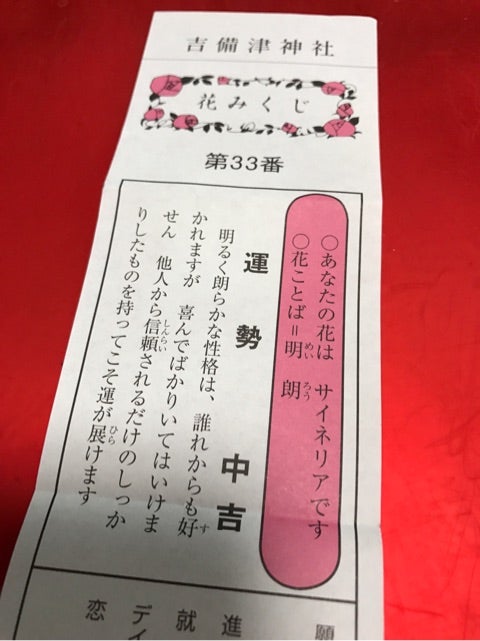 吉備津神社
花みくじ
第33番
○あなたの花は サイネリアです
○花ことば=明朗
めい ろう
運勢 中吉
明るく朗らかな性格は、誰れからも好
す
かれますが 喜んでばかりいてはいけま
せん 他人から信頼されるだけのしっか
しんらい
りしたものを持ってこそ運が展けます
ひら
願
進
就
デイ
恋